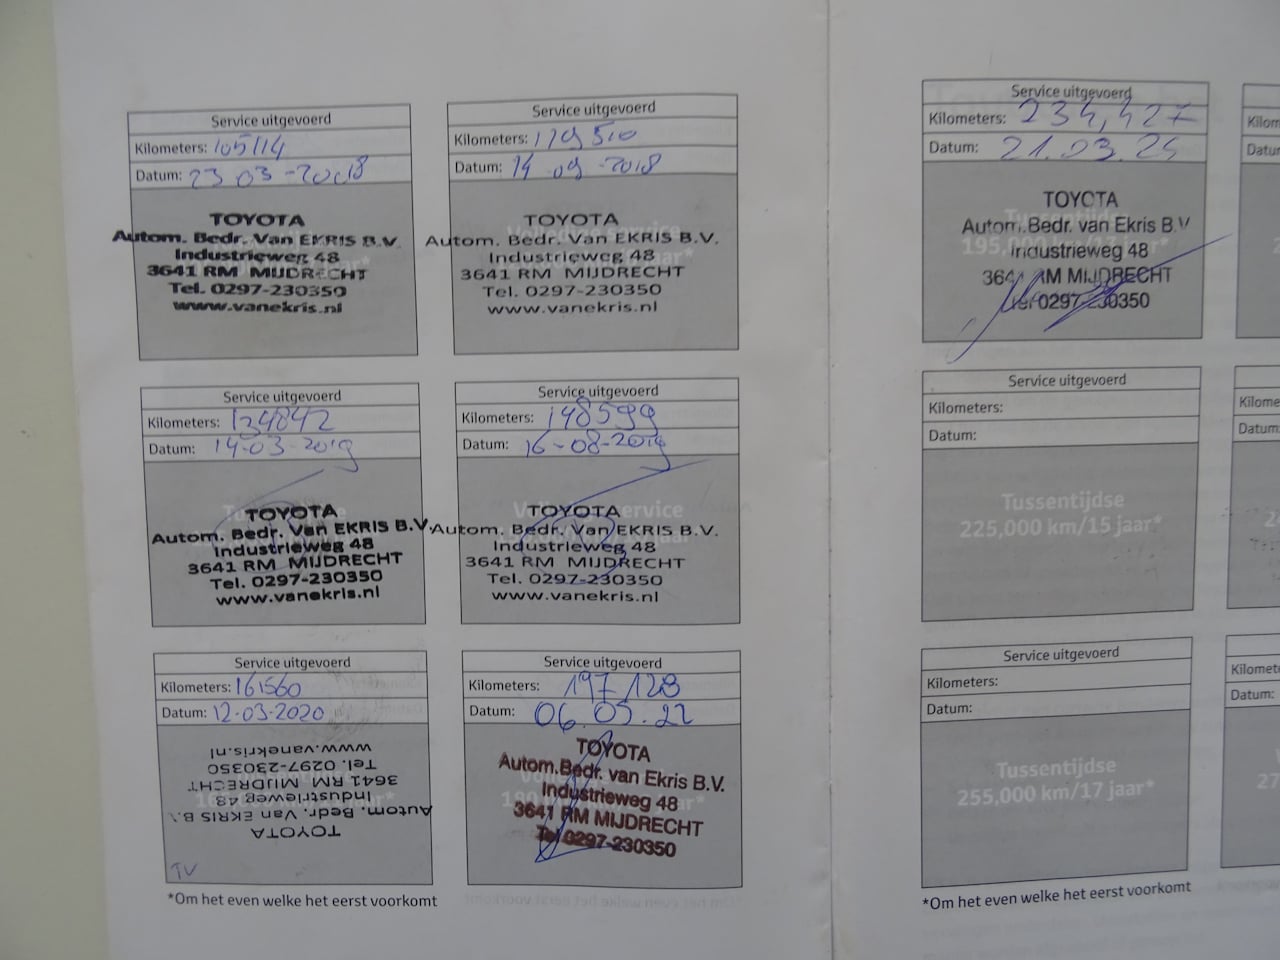 Service uitgevoerd
Kilometers: 105114
Datum: 23 03 -2018
TOYOTA
Autom. Bedr. Van EKRIS B.V.
Industrieweg 48
3641 RM MIJDRECHT
Tel. 0297-230350
www.vanekris.nl
Service uitgevoerd
Kilometers: 119510
Datum: 14 -09 -2018
TOYOTA
Autom. Bedr. Van EKRIS B.V.
Industrieweg 48
3641 RM MIJDRECHT
Tel. 0297-230350
www.vanekris.nl
Service uitgevoerd
Kilometers: 134842
Datum: 14-03-2019
TOYOTA
Autom. Bedr. Van EKRIS B.V.
Industrieweg 48
3641 RM MIJDRECHT
Tel. 0297-230350
www.vanekris.nl
Service uitgevoerd
Kilometers: 148599
Datum: 16-08-2019
TOYOTA
Autom. Bedr. Van EKRIS B.V.
Industrieweg 48
3641 RM MIJDRECHT
Tel. 0297-230350
www.vanekris.nl
Service uitgevoerd
Kilometers: 161560
Datum: 12-03-2020
TOYOTA
Autom. Bedr. Van EKRIS B.V.
Industrieweg 48
3641 RM MIJDRECHT
Tel. 0297-230350
www.vanekris.nl
TV
Service uitgevoerd
Kilometers: 197128
Datum: 06.05.22
TOYOTA
Autom.Bedr. van Ekris B.V.
Industrieweg 48
3641 RM MIJDRECHT
Tel 0297-230350
*Om het even welke het eerst voorkomt
Service uitgevoerd
Kilometers: 234,427
Datum: 21.03.25
Tussentijdse
195,000 km/13 jaar*
TOYOTA
Autom.Bedr. van Ekris B.V
Industrieweg 48
3641 RM MIJDRECHT
Tel 0297-230350
Service uitgevoerd
Kilometers:
Datum:
Tussentijdse
225,000 km/15 jaar*
Service uitgevoerd
Kilometers:
Datum:
Tussentijdse
255,000 km/17 jaar*
*Om het even welke het eerst voorkomt